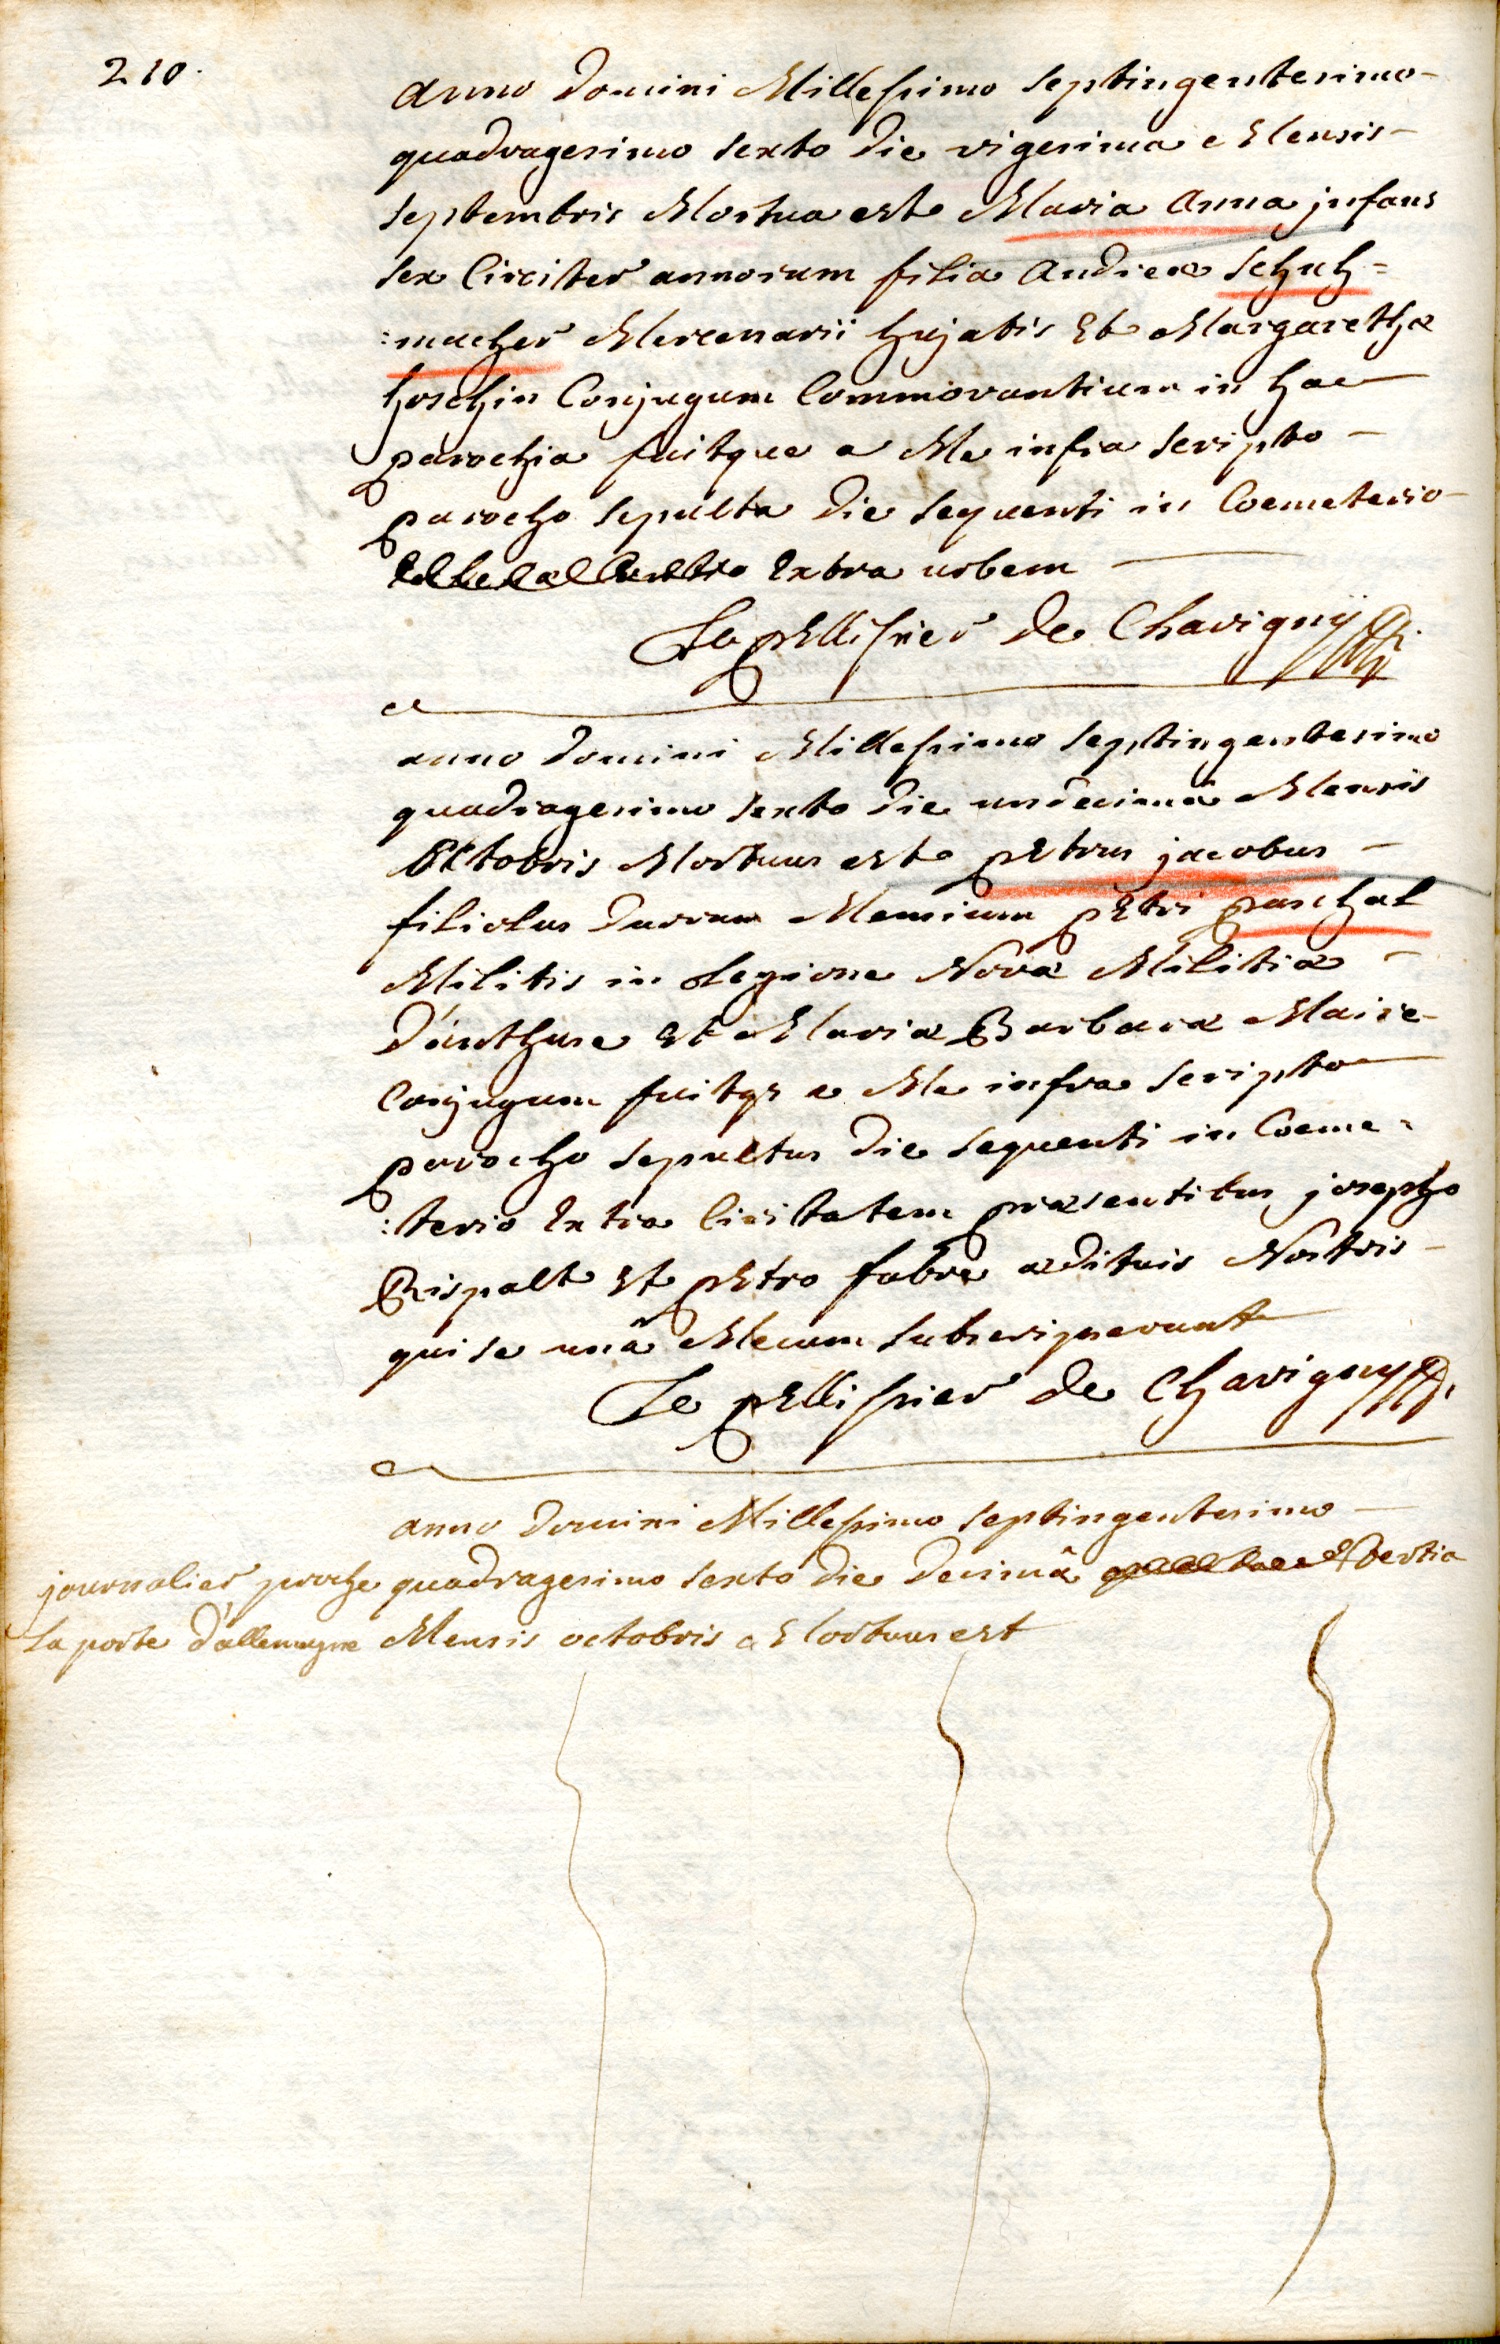 210.
anno Domini Millesimo septingentesimo-
quadragesimo sexto die vigesima Mensis-
septembris Mortua est Maria anna infans
sex Circiter annorum filia andreæ schuh=
:macher Mercenarii hujatis Et Margarethæ
hoschin Conjugum Commorantium in hac
parochia fuitque a Me infra scripto -
parocho sepulta die sequenti in Coemeterio-
Extra urbem -
Le pEllissier de Chavigny
anno Domini Millesimo septingentesimo
quadragesimo sexto die undecimâ Mensis
octobris Mortuus est pEtrus jacobus -
filiolus duorum Mensium pEtri paschal
Militis in Legione Novæ Militiæ -
Et Mariæ Barbaræ Maire-
Conjugum fuitqz a Me infra scripto
parocho sepultus die sequenti in Coeme=
:terio Extra Civitatem præsentibus josepho
Rispalt Et pEtro fabre ædituis Nostris-
qui se unâ Mecum subscripserunt
Le pEllissier de Chavigny
anno Domini Millesimo septingentesimo -
journalier proche quadragesimo sexto die Decimâ tertia
La porte d'allemagne Mensis octobris Mortuus est